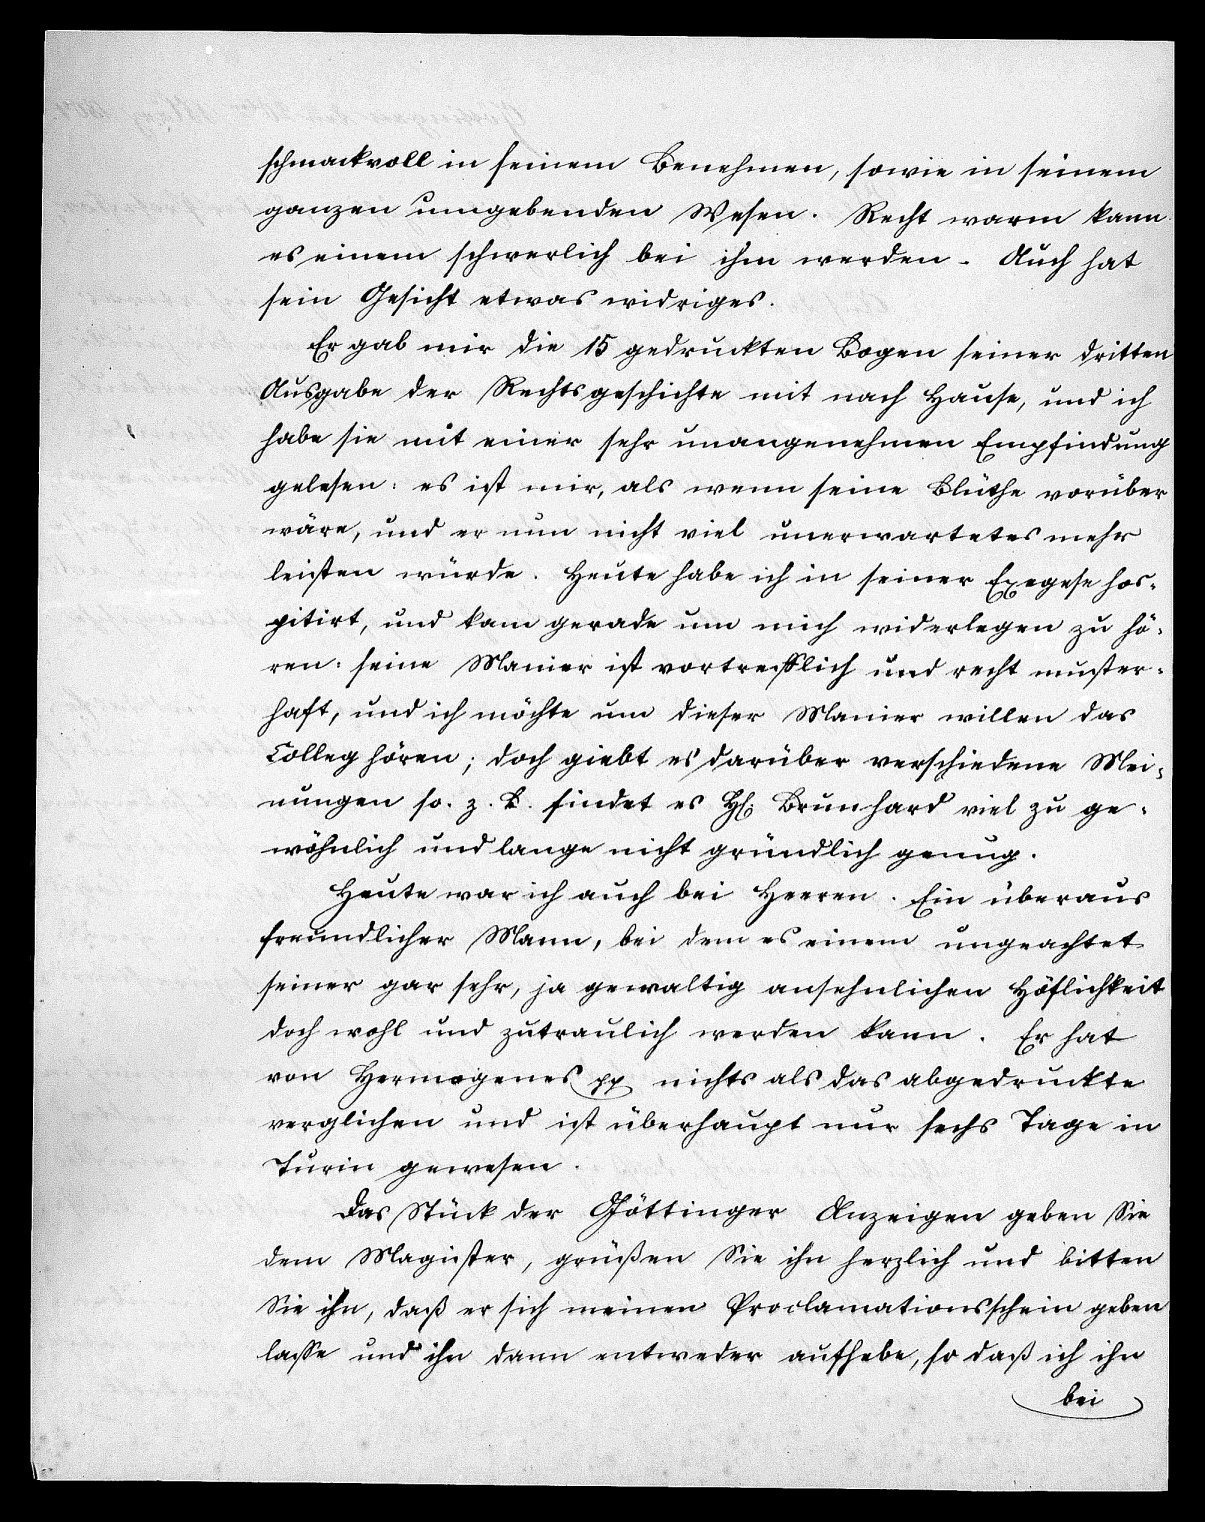 schmackvoll in seinem Benehmen, sowie in seinem
ganzen umgebenden Wesen. Recht warm kann
es einem schwerlich bei ihm werden. Auch hat
sein Gesicht etwas widriges.
Er gab mir die 15 gedruckten Bogen seiner dritten
Ausgabe der Rechtsgeschichte mit nach Hause, und ich
habe sie mit einer sehr unangenehmen Empfindung
gelesen: es ist mir, als wenn seine Blüthe vorüber
wäre, und er nun nicht viel unerwartetes mehr
leisten würde. Heute habe ich in seiner Exegese hos-
pitirt, und kam gerade um mich widerlegen zu hö-
ren: seine Manier ist vortrefflich und recht muster-
haft, und ich möchte um dieser Manier willen das
Colleg hören; doch giebt es darüber verschiedene Mei-
nungen so. z. B. findet es H. Brunhard viel zu ge-
wöhnlich und lange nicht gründlich genug.
Heute war ich auch bei Heeren. Ein überaus
freundlicher Mann, bei dem es einem ungeachtet
seiner gar sehr, ja gewaltig ansehnlichen Höflichkeit
doch wohl und zutraulich werden kann. Er hat
von Hermogenes pp nichts als das abgedruckte
verglichen und ist überhaupt nur sechs Tage in
Turin gewesen.
Das Stück der Göttinger Anzeigen geben Sie
dem Magister, grüßen Sie ihn herzlich und bitten
Sie ihn, daß er sich meinen Proclamationsschein geben
lasse und ihn dann entweder aufhebe, so daß ich ihn
bei